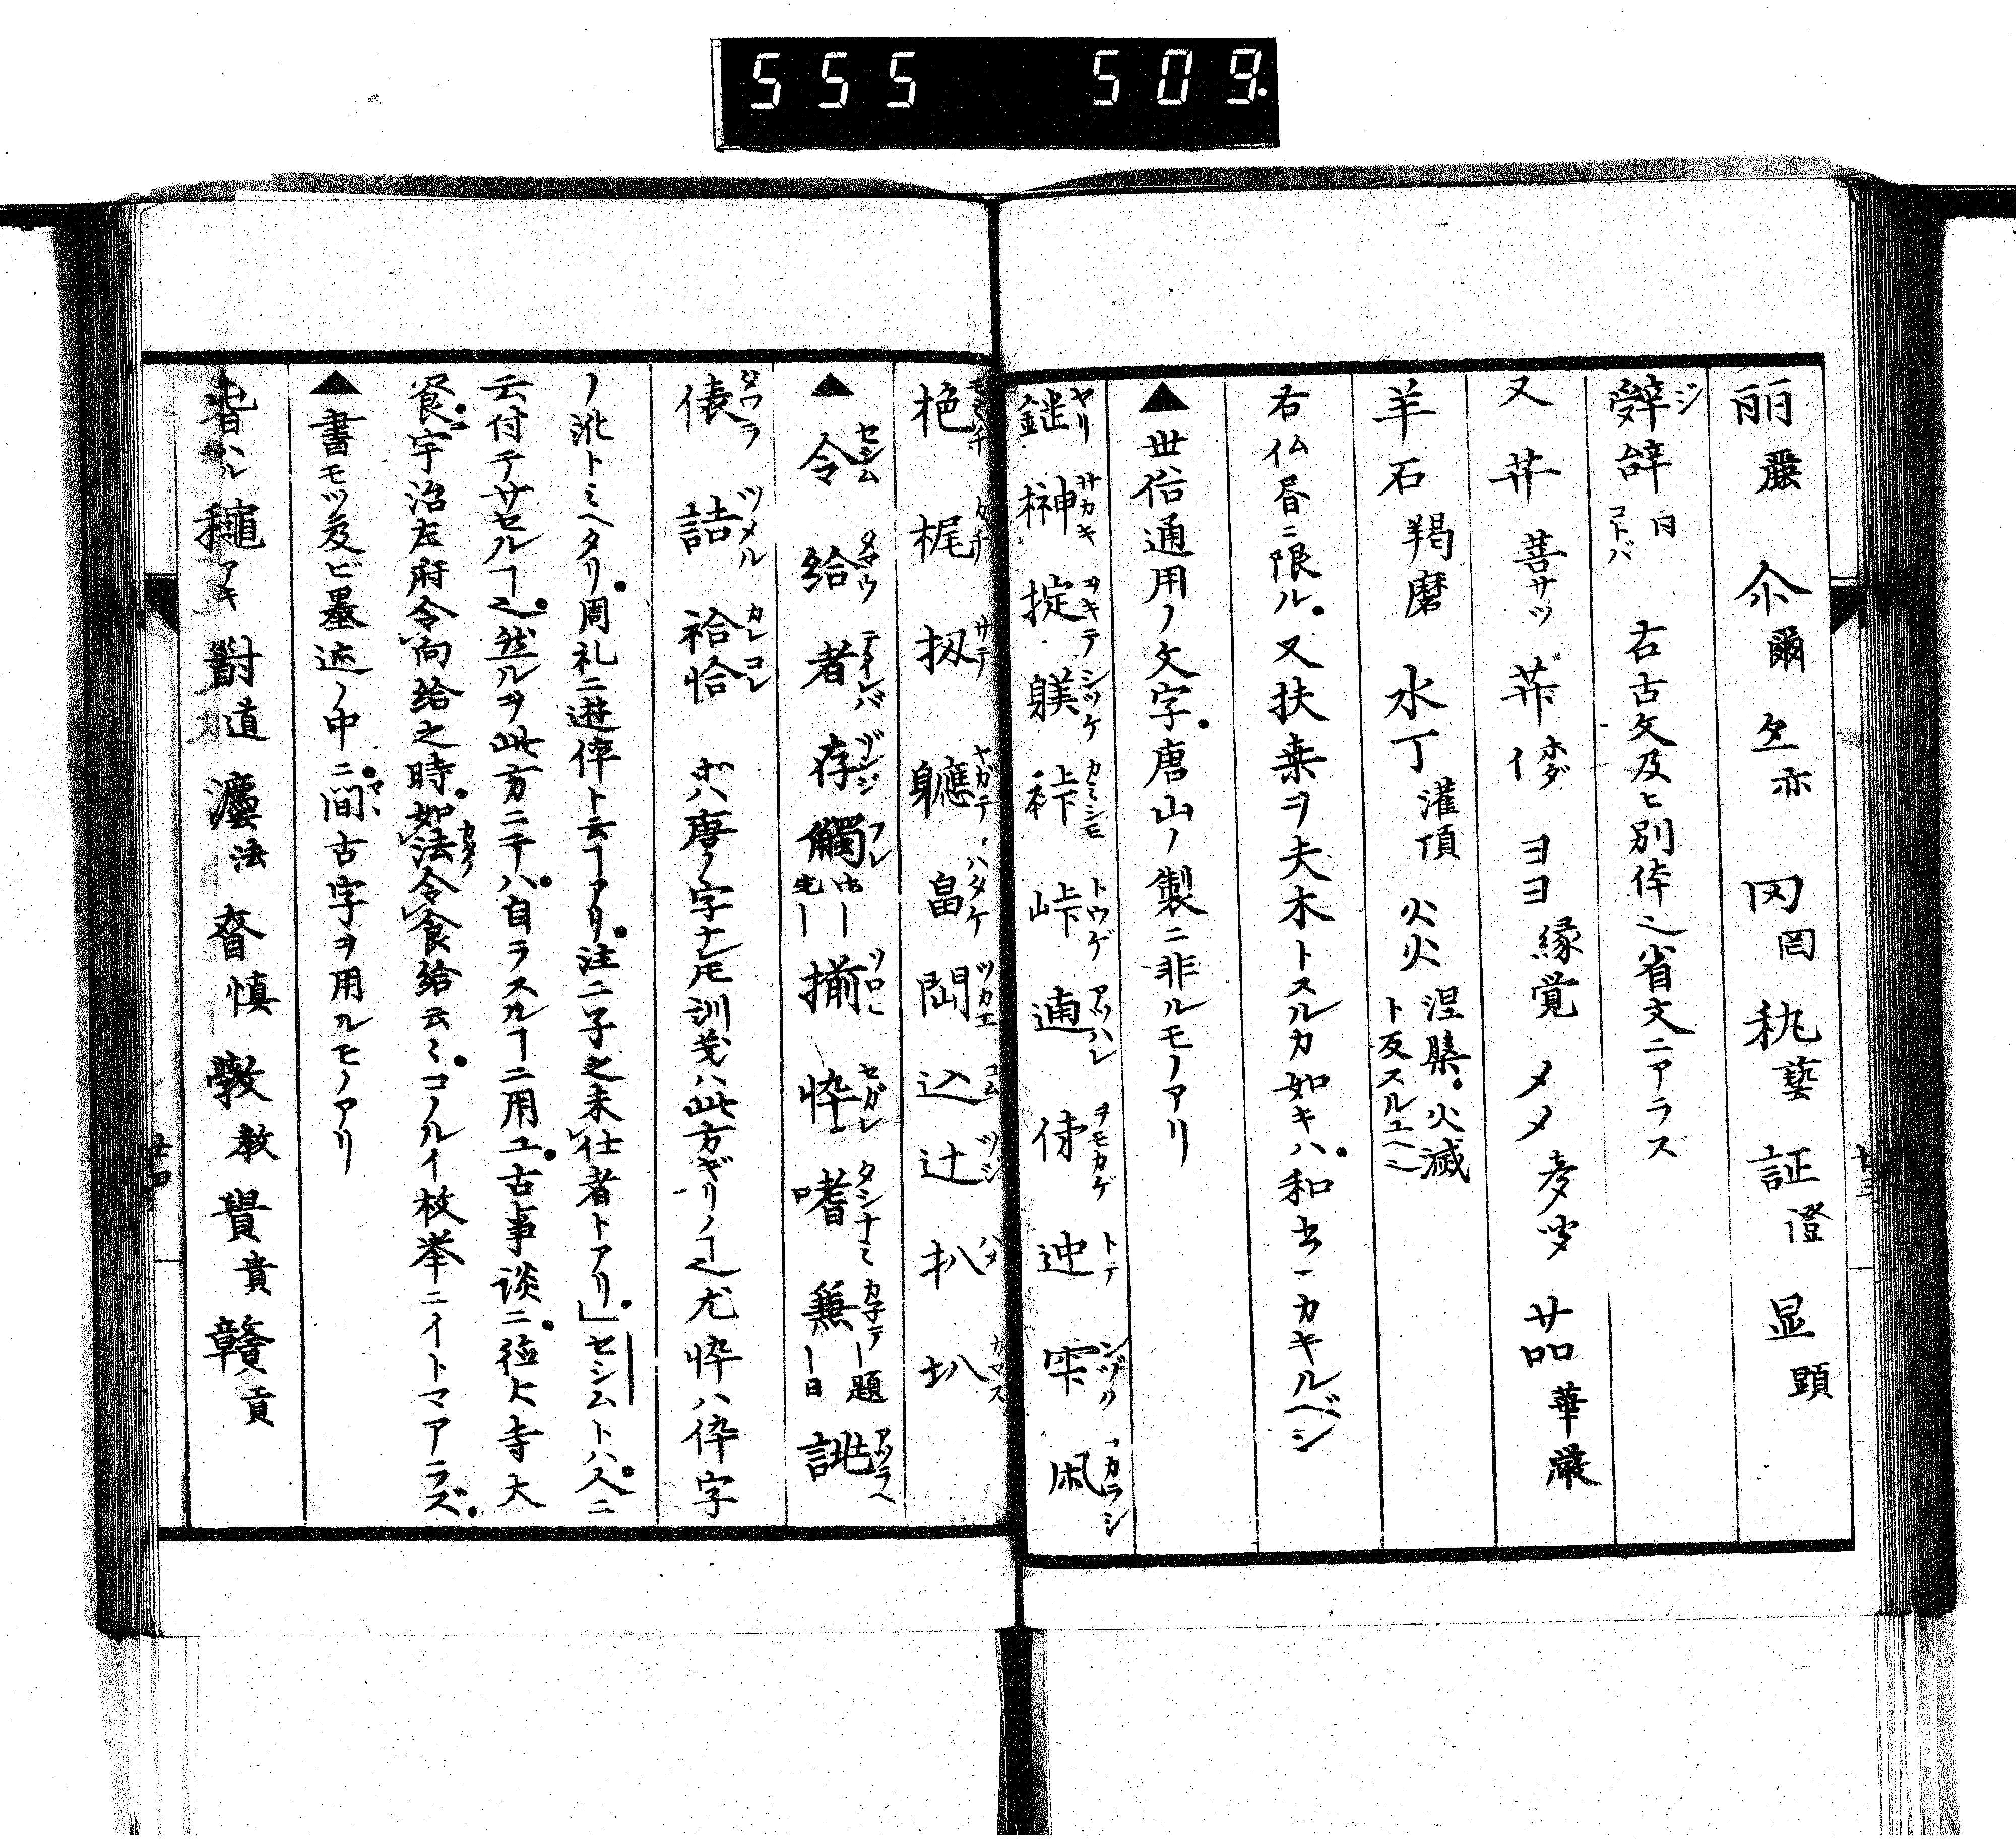 555 509.
丽麗 尒爾 𡖋亦 𦉪罔 秇藝 証證 显顕
辤辝ジ 同コトバ 右古文及ヒ別体也省文ニアラズ
又 𦬇菩サツ 𦬠 ホダイ ヨヨ縁覚 メメ 𠱾華厳
羊石羯磨 水丁灌頂 火火涅槃。火滅ト反スルユヘニ
右仏書ニ限ル。又扶桑ヲ夫木トスルカ如キハ。和書ニカキルベシ
▲世俗通用ノ文字。唐山ノ製ニ非ルモノアリ
鑓ヤリ 榊サカキ 掟ヲキテ 躾シツケ 裃カミシモ 峠トウゲ 遖アツハレ 俤ヲモカゲ 迚トテ 雫シヅク 凩コカラシ
栬モミチ 梶カチ 扨サテ 軈ヤガテ 畠ハタケ 閊ツカエ 込コム 辻ツジ 扒 圦
▲令セシム 給タマウ 者テイレバ 存ゾンジ 觸フレ 揃ソロヘ 忰セガレ 嗜タシナミ 兼カネテ ー題 ー日 誂アツラヘ
俵タワラ 詰ツメル 袷恰 ホハ唐ノ字ナレ𪜈訓義ハ此方ギリノヿ也尤忰ハ倅字
ノ訛トミヘタリ。周礼ニ遊倅ト云ヿアリ。注ニ子之未仕者トアリ。」セシムトハ人ニ
云付テサセルヿ也。然ルヲ此方ニテハ。自ラスルヿニ用ユ。古事談ニ。徳大寺大
飡宇治左府令向給之時。如法令食給云ミ。コノルイ枚挙ニイトマアラズ。
▲書モツ及ビ墨迹ノ中ニ間マヽ古字ヲ用ルモノアリ
旾ハル 龝アキ 𡬹道 灋法 昚慎 𢽾教 貴 贛貢
廿三
廿四